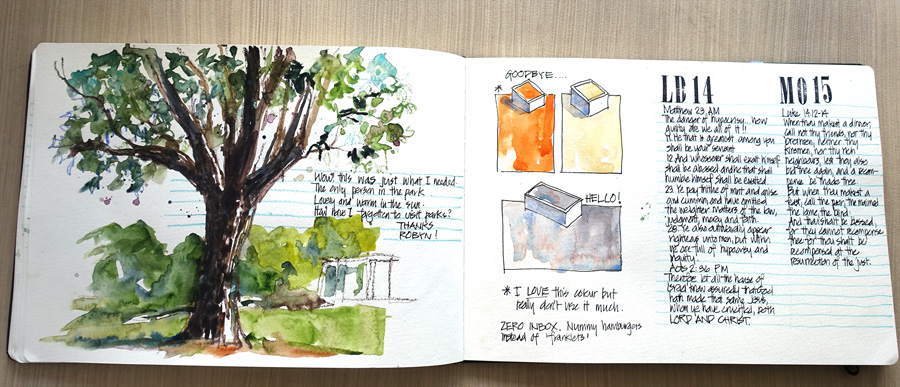 Wow. this was just what I needed.
The only person in the park
Lovely and warm in the sun.
How have I forgotten to visit parks?
THANKS
ROBYN!
GOODBYE....
*
HELLO!
* I LOVE this colour but
really don't use it much.
ZERO INBOX. Nummy hamburgers
instead of 'franklets'
LB 14
Matthew 23. AM
The danger of hypocrisy... how
guilty are we all of it!!
He that is greatest among you
shall be your servant
12 And whosoever shall exalt himself
shall be abased and he that shall
humble himself shall be exalted.
23. Ye pay tithe of mint and anise
and cummin, and have omitted
the weightier matters of the law,
judgment, mercy and faith.
28. Ye also outwardly appear
righteous unto men, but within
ye are full of hypocrisy and
iniquity.
Acts 2:36 PM
Therefore let all the house of
Israel know assuredly that God
hath made that same Jesus,
whom ye have crucified, both
LORD AND CHRIST.
MO 15
Luke 14:12-14
When thou makest a dinner,
call not thy friends, nor thy
brethren, neither thy
kinsmen, nor thy rich
neighbours; lest they also
bid thee again, and a recom-
pence be made thee.
But when thou makest a
feast, call the poor, the maimed
the lame, the blind:
And thou shalt be blessed,
for they cannot recompense
thee for thou shalt be
recompensed at the
resurrection of the just.